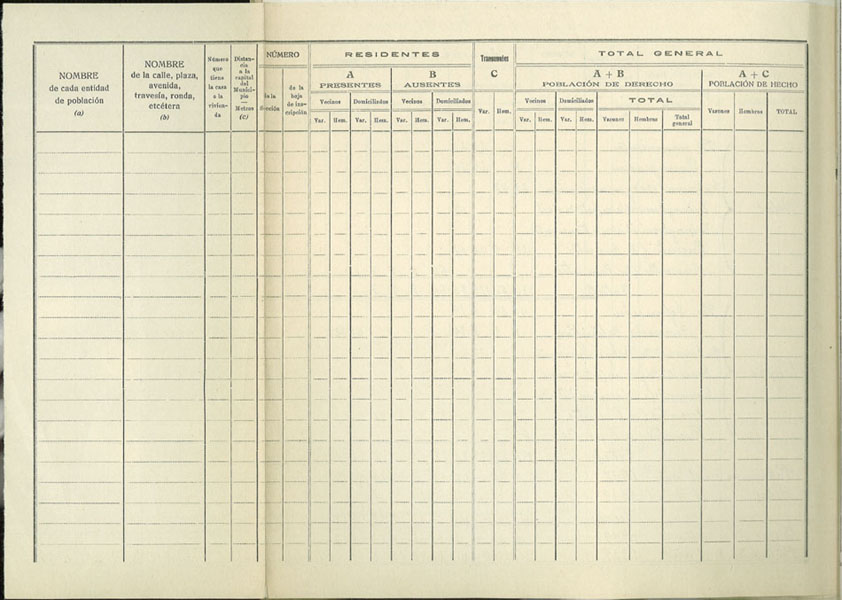 NOMBRE
de cada entidad
de población
(a)
NOMBRE
de la calle, plaza,
avenida,
travesía, ronda,
etcétera
(b)
Número
que
tiene
la casa
o la
vivien-
da
Distan-
cia
a la
capital
del
Munici-
pio
—
Metros
(c)
NÚMERO
de la
hoja
de ins-
cripción
RESIDENTES
A
PRESENTES
B
AUSENTES
Vecinos Domiciliados Vecinos Domiciliados
Var. Hem. Var. Hem. Var. Hem. Var. Hem.
Transeuntes
C
Var. Hem.
TOTAL GENERAL
A + B
POBLACIÓN DE DERECHO
Vecinos Domiciliados TOTAL
Var. Hem. Var. Hem. Varones Hembras Total
general
A + C
POBLACIÓN DE HECHO
Varones Hembras TOTAL